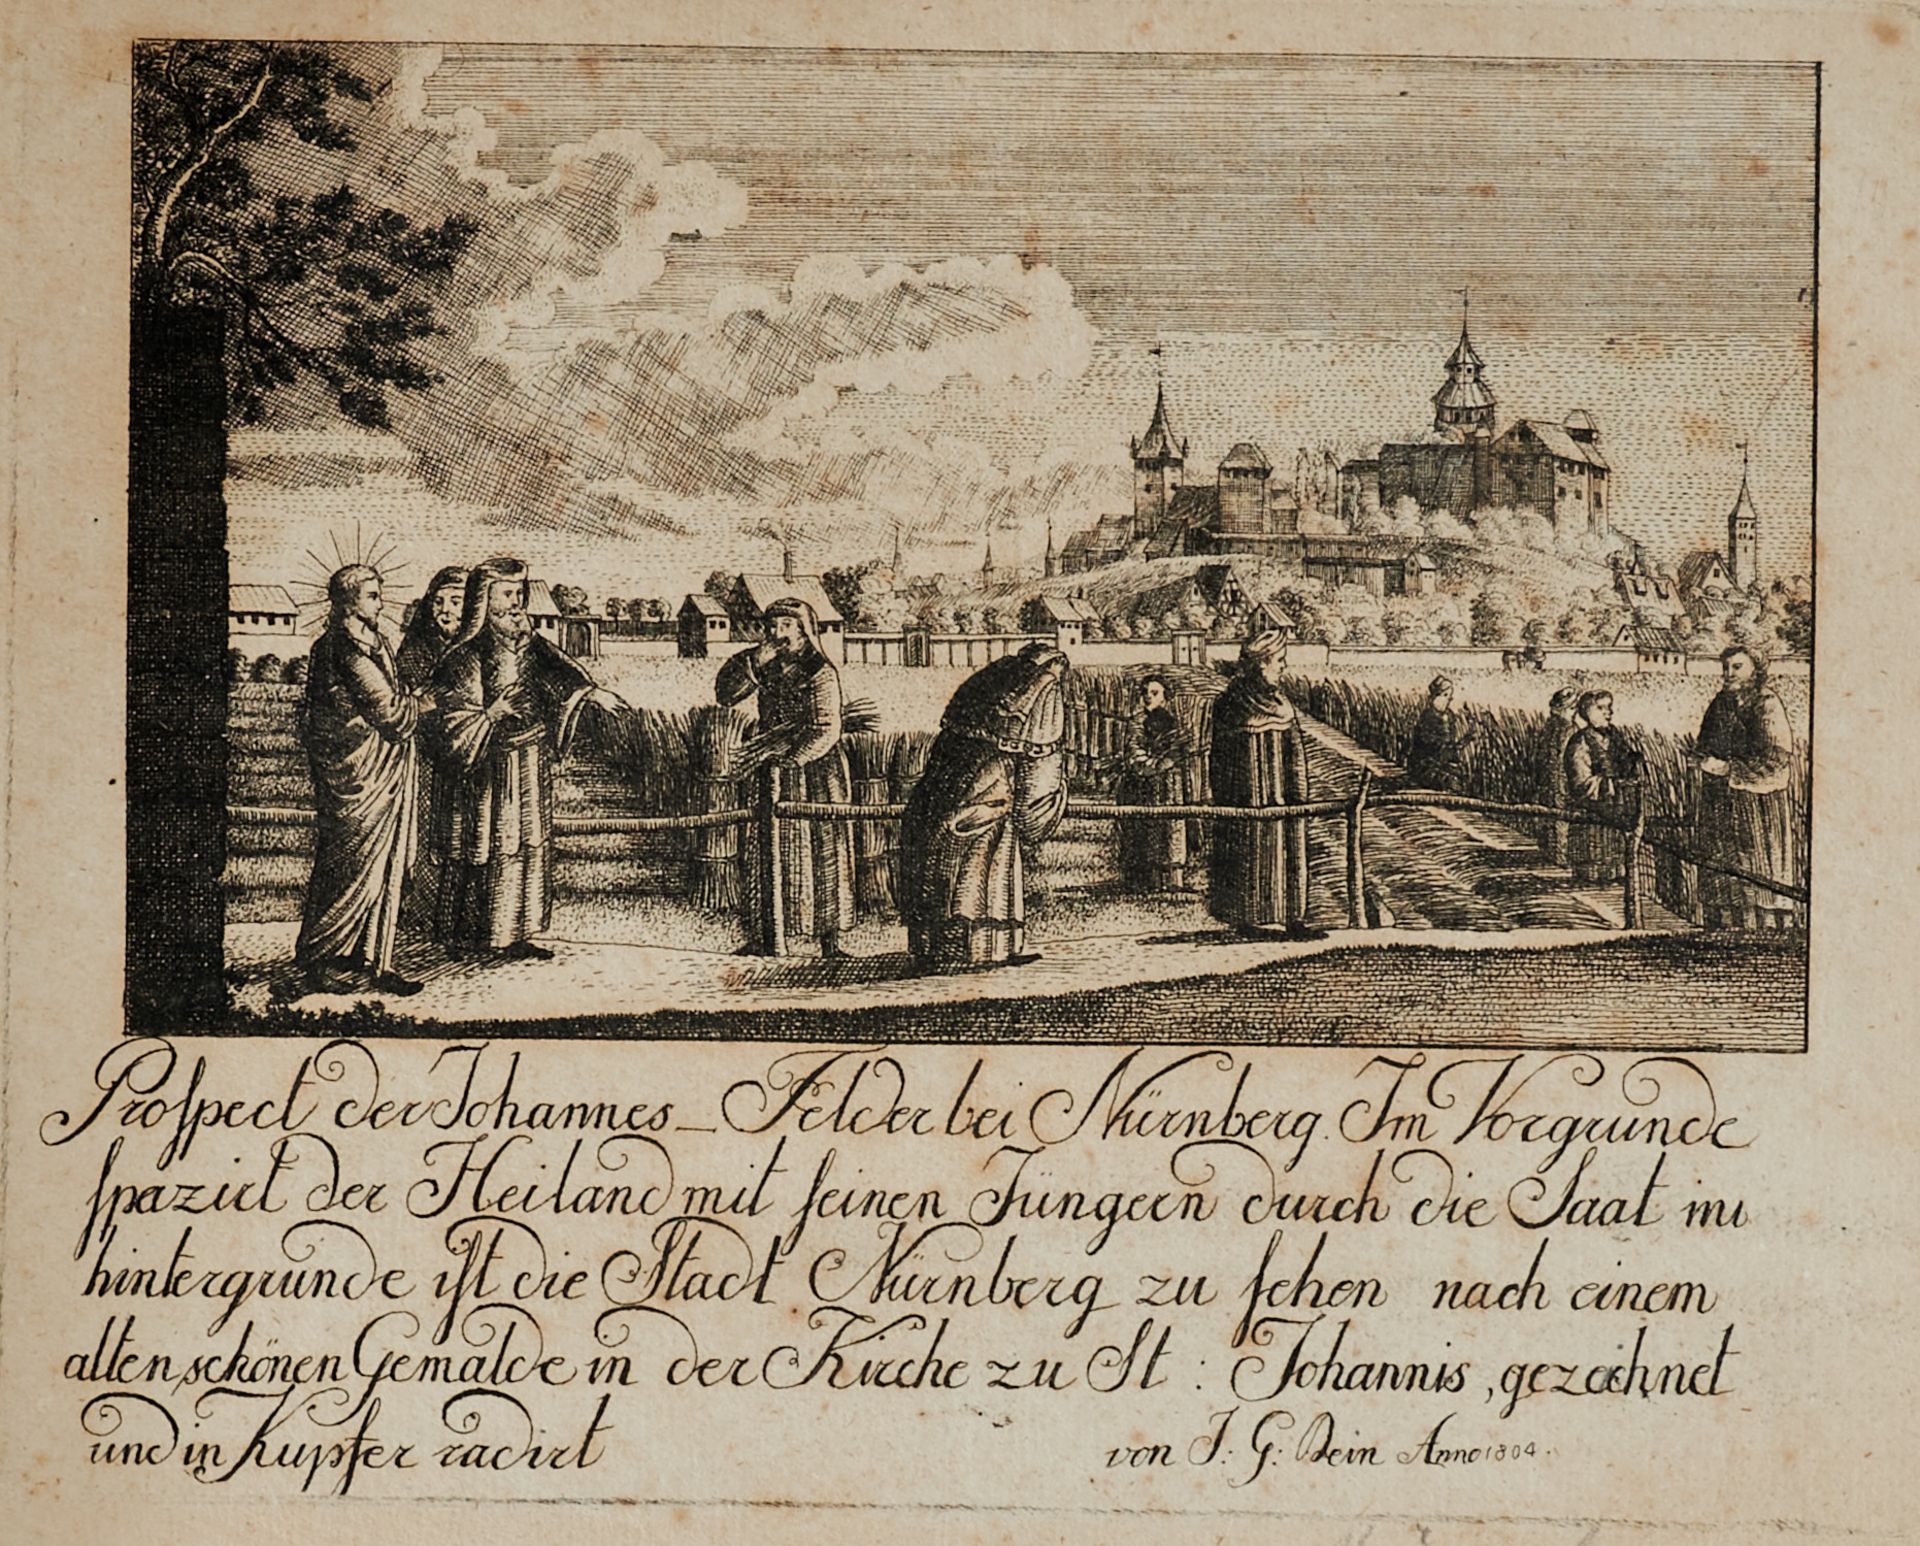 Proſpect der Johannes_Felder bei Nürnberg. Im Vorgrunde
ſpazirt der Heiland mit ſeinen Jüngern durch die Saat im
hintergrunde iſt die Stadt Nürnberg zu ſehen nach einem
alten schönen Gemalde in der Kirche zu St: Johannis, gezeichnet
und in Kupfer radirt von J: G: Bein Anno 1804.